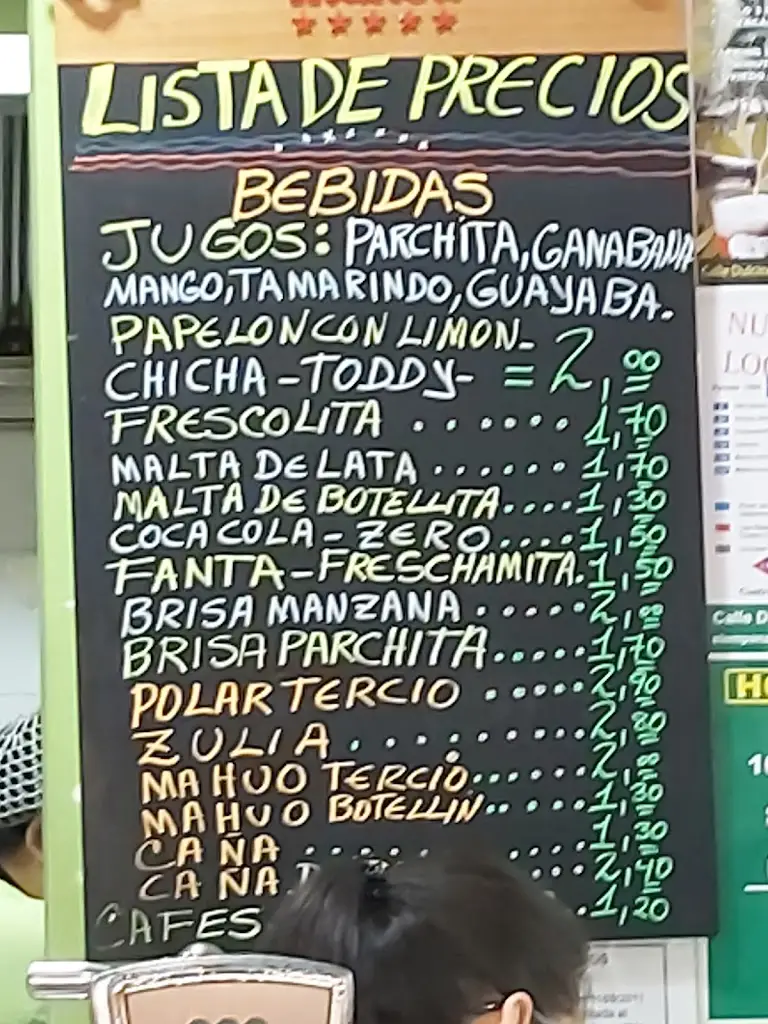 LISTA DE PRECIOS
BEBIDAS
JUGOS: PARCHITA, GANABANA
MANGO, TAMARINDO, GUAYABA.
PAPELON CON LIMON-
CHICHA - TODDY- = 2,00
FRESCOLITA ...... 1,70
MALTA DE LATA ...... 1,70
MALTA DE BOTELLITA.... 1,30
COCA COLA - ZERO .... 1,50
FANTA - FRESCHAMITA. 1,50
BRISA MANZANA ..... 2,00
BRISA PARCHITA..... 1,70
POLAR TERCIO ..... 2,90
ZULIA ......... 2,80
MAHUO TERCIO...... 2,00
MAHUO BOTELLIN.. 1,30
CAÑA ......... 1,30
CAÑA ... 2,40
CAFES . 1,20
NU
LO
Calle D
HO